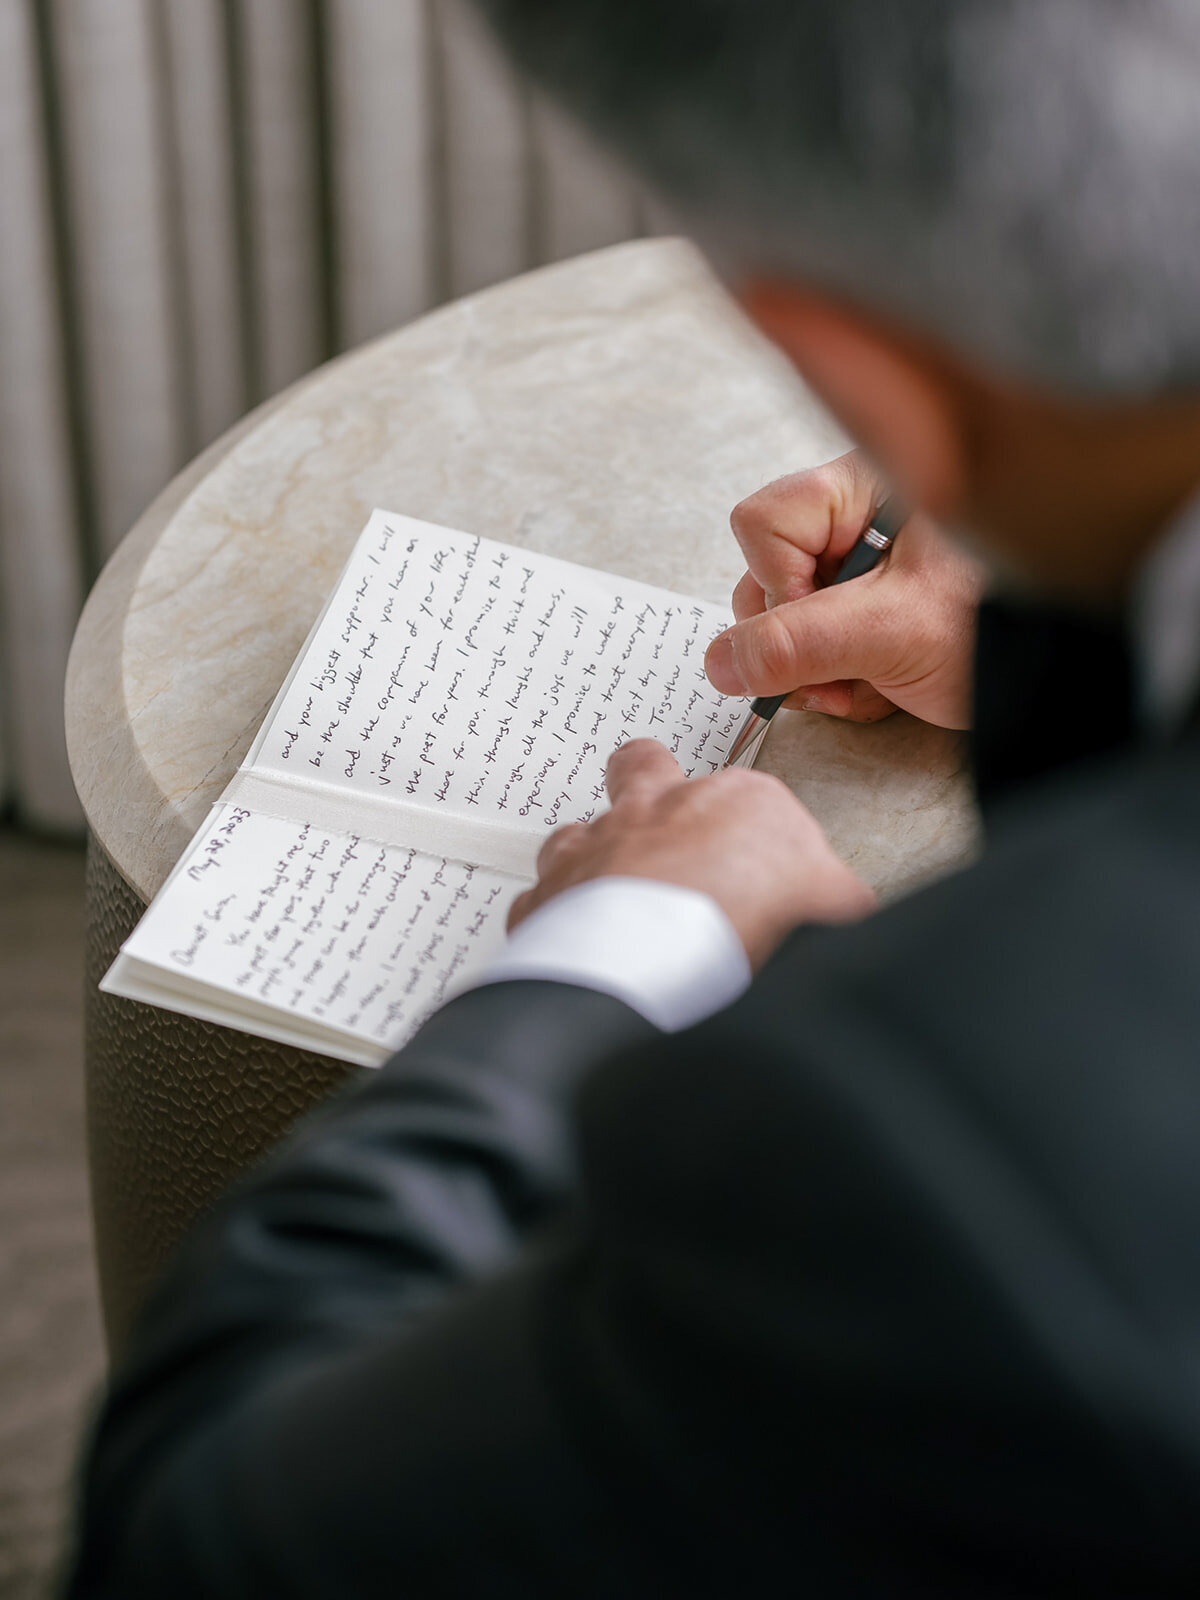 May 28, 2023
Dearest
You have taught me over
the past few years that two
people joined together with respect
and trust can be far stronger
& happier than each could ever
be alone. I am in awe of your
strength
challenges that we
and your biggest supporter. I will
be the shoulder that you lean on
and the companion of your life,
just as we have been for each other
the past for years. I promise to be
there for you, through thick and
thin, through laughs and tears,
through all the joys we will
experience. I promise to wake up
every morning and treat everyday
like the very first day we met,
Together we will
journey
thee to be
I love